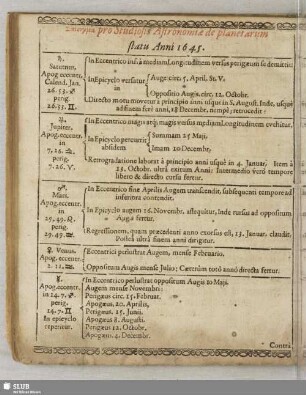 Excerpta pro Studiosis Astronomiæ de planetarum
statu Anni 1645.
♄.
Saturnus,
Apog. eccentr.
Calend. Jan.
26. 53. ♐
perig.
26. 53. ♊
In Eccentrico infra mediam Longitudinem versus perigæum se demittit:
In Epicyclo versatur in
Auge circ. 5. April. St. V.
Oppositio Augis circ. 12. Octobr.
Directo motu movetur à principio anni usque in S. August. Inde, usque
ad finem ferè anni, 18 Decembr. nempè, retrocedit:
♃,
Jupiter,
Apog. eccentr.
in
7. 26. ♎
perig.
7. 26. ♈.
In Eccentrico magis atque magis versus mediam Longitudinem evehitur.
In Epicyclo percurrit absidem
Summam 25 Maji,
Imam 10 Decembr.
Retrogradatione laborat à principio anni usque in 4. Januar. Item à
23, Octobr. ultra exitum Anni: Intermedio verò tempore
libero & directo cursu fertur.
♂.
Mars,
Apog. eccentr.
in
29. 49. ♌
perig.
29. 49. ♒
In Eccentrico fine Aprilis Augem transcendit, subsequenti tempore ad
inferiora contendit.
In Epicyclo augem 16. Novembr. assequitur, Inde rursus ad oppositum
Augis fertur.
Regressionem, quam præcedenti anno exorsus est, 23. Januar. claudit.
Posteà ultra finem anni dirigitur.
♀ Venus,
Apog. eccentr.
Eccentrici perlustrat Augem, mense Februario.
Oppositum Augis mense Julio; Cæterùm totò annò directa fertur.
☿.
Apog. eccentr.
in 24. 7.
perig.
24. 7. ♊
In epicyclo
reperitur.
In Eccentrico perlustrat oppositum Augis 10 Maji.
Augem mense Novembri:
Perigæus circ. 15. Februar.
Apogæus, 20. Aprilis,
Perigæus, 25. Junii.
Apogæus 8. Augusti.
Perigæus 12. Octobr.
Apogæus, 4. Decembr.
Contrà
SLUB